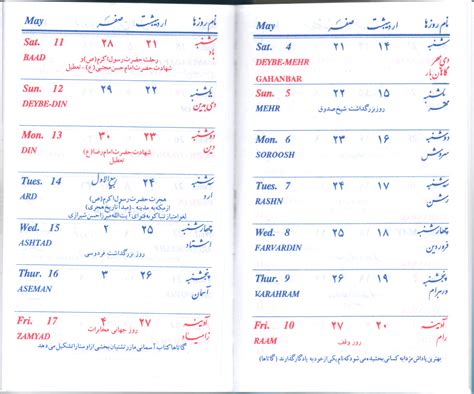 نام روزها اردیبهشت صفر May
شنبه ۱۴ ۲۱ Sat. 4
دی بمهر DEYBE-MEHR
گاهان بار GAHANBAR
یکشنبه ۱۵ ۲۲ Sun. 5
مهر روز بزرگداشت شیخ صدوق MEHR
دوشنبه ۱۶ ۲۳ Mon. 6
سروش SOROOSH
سه شنبه ۱۷ ۲۴ Tues. 7
رشن RASHN
چهارشنبه ۱۸ ۲۵ Wed. 8
فروردین FARVARDIN
پنجشنبه ۱۹ ۲۶ Thur. 9
ورهرام KARAHRAM
آدینه ۲۰ ۲۷ Fri. 10
رام روز وقف RAAM
بهترین پاداش مزدا به کسانی بخشیده می شود که نام یکی از خود به یادگار گذارند. (گاتاها)
نام روزها اردیبهشت صفر May
شنبه ۲۱ ۲۸ Sat. 11
باد رحلت حضرت رسول اکرم (ص) و BAAD
شهادت حضرت امام حسن مجتبی (ع) - تعطیل
یکشنبه ۲۲ ۲۹ Sun. 12
دی بدین DEYBE-DIN
دوشنبه ۲۳ ۳۰ Mon. 13
دین شهادت حضرت امام رضا (ع) DIN
تعطیل
سه شنبه ۲۴ ربیع الاول Tues. 14
ارد هجرت حضرت رسول اکرم (ص) ARD
از مکه به مدینه - (مبدأ تاریخ هجری)
لغو امتیاز تنباکو به فتوای آیت‌الله میرزا حسن شیرازی
چهارشنبه ۲۵ ۲ Wed. 15
اشتاد روز بزرگداشت فردوسی ASHTAD
پنجشنبه ۲۶ ۳ Thur. 16
آسمان ASEMAN
آدینه ۲۷ ۴ Fri. 17
زامیاد روز جهانی مخابرات ZAMYAD
گاتاها کتاب آسمانی مازرتشتیان بخشی از اوستا را تشکیل می دهد